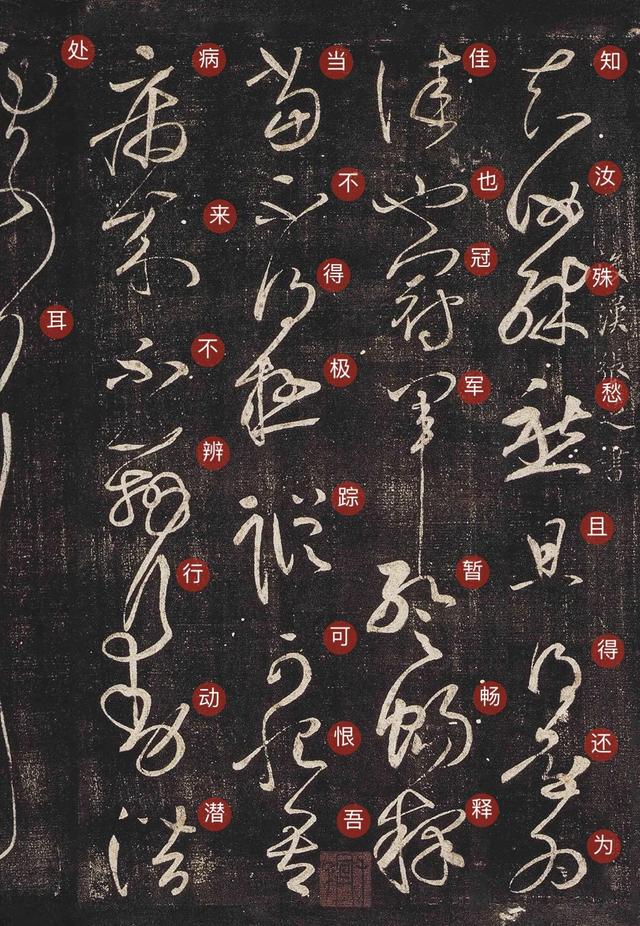 後漢張芝書
知汝殊愁且得还为
佳也冠军暂畅释
当不得极踪可恨吾
病来不辨行动潜
处耳